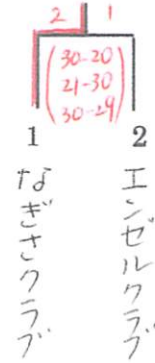 2 1
30-20
21-30
30-29
1 2
なぎさクラブ
エンゼルクラブ